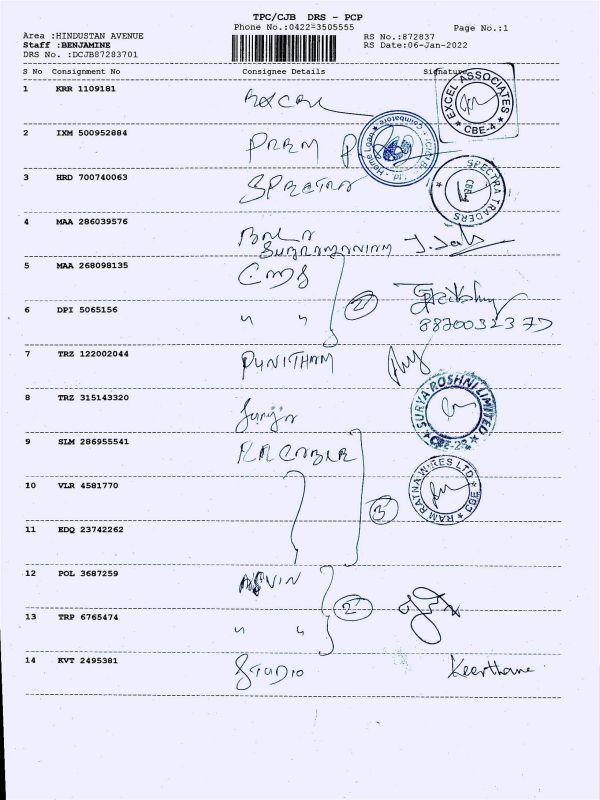 TPC/CJB DRS - PCP
Phone No.:0422-3505555
Page No.:1
Area :HINDUSTAN AVENUE
RS No.:872837
Staff :BENJAMINE
RS Date:06-Jan-2022
DRS No. :DCJB87283701
S No Consignment No Consignee Details Signature
1 KRR 1109181 EXCEL
EXCEL ASSOCIATES CBE-4
2 IXM 500952884 PREM
Home Loan Coimbatore
3 HRD 700740063 SPECTRA
SPECTRA TRADERS
4 MAA 286039576 BALA
SUBRAMANIAM
5 MAA 268098135
6 DPI 5065156 " " 2
7 TRZ 122002044 PUNITHAM
8 TRZ 315143320 Surya
SURYA ROSHNI LIMITED CBE-2
9 SLM 286955541 RR CABLE
10 VLR 4581770
RAM RATNA WIRES LTD CBE
11 EDQ 23742262 3
12 POL 3687259 ASVIN
13 TRP 6765474 " " 2
14 KVT 2495381 STUDIO Keerthane